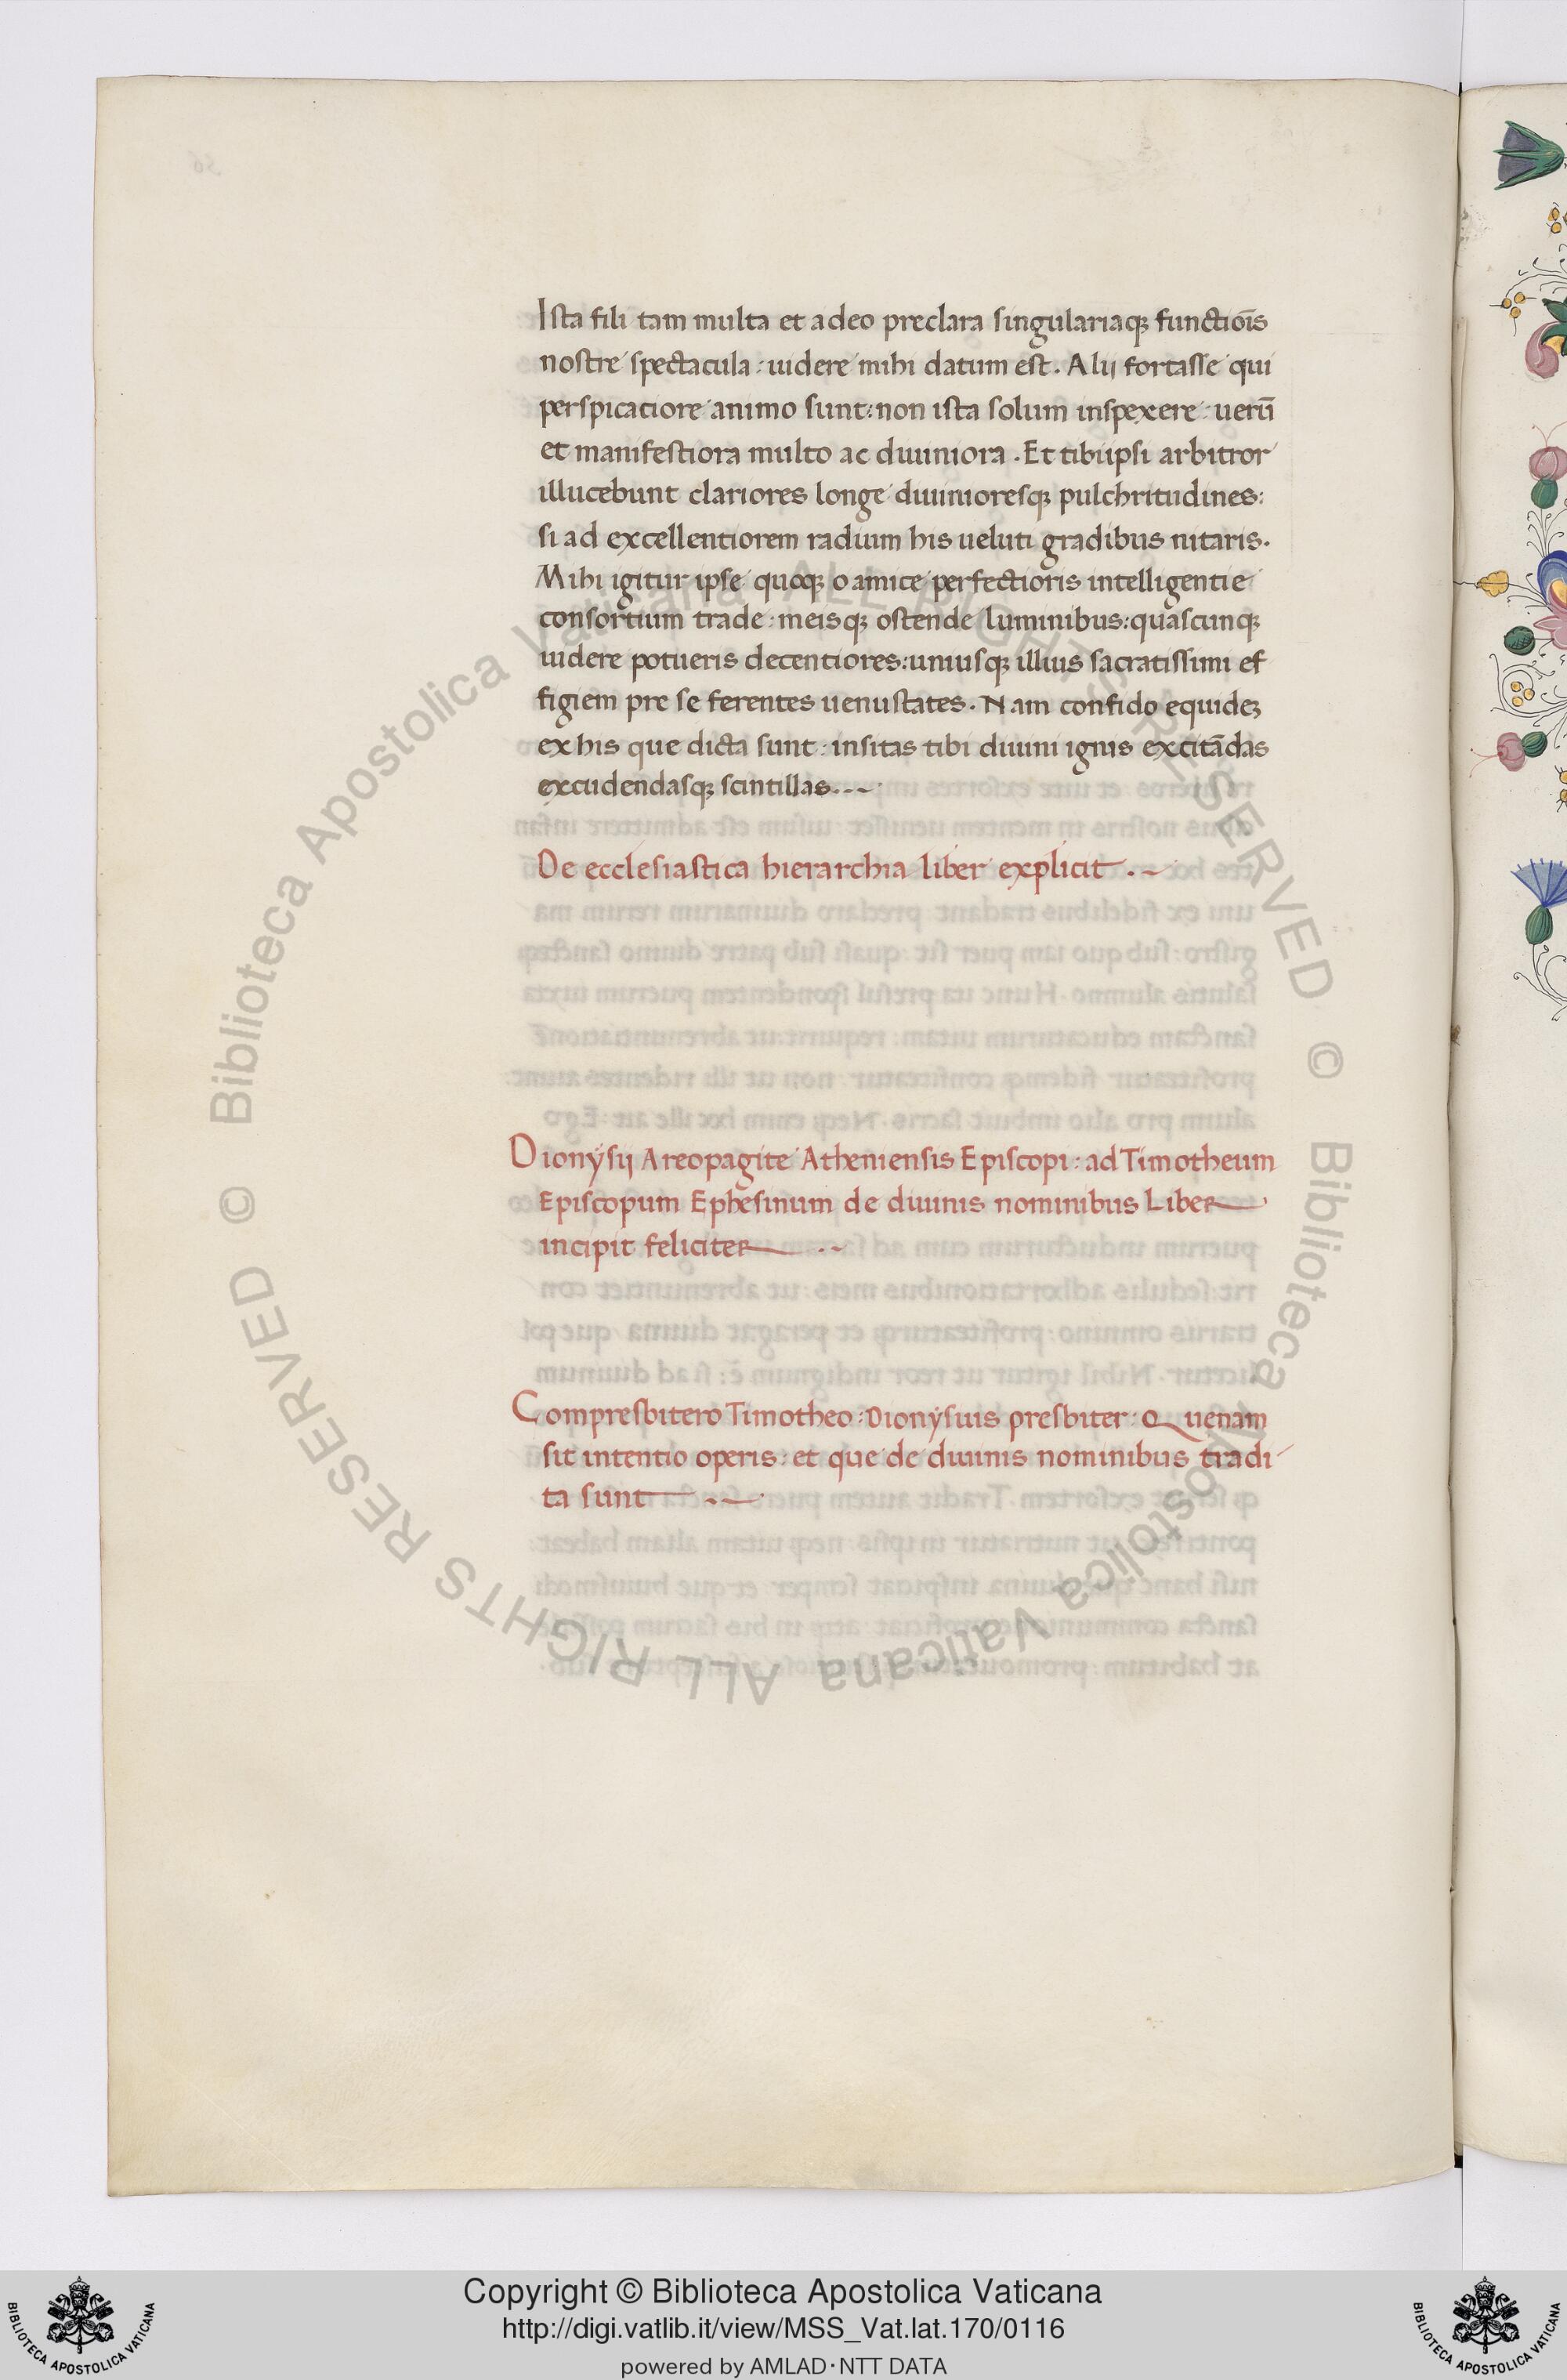 Ista fili tam multa et adeo preclara singulariaqꝫ functiōis
nostre spectacula : uidere mihi datum est . Alij fortasse qui
perspicatiore animo sunt : non ista solum inspexere : uerū
et manifestiora multo ac diuiniora . Et tibiipsi arbitror
illucebunt clariores longe diuinioresqꝫ pulchritudines :
si ad excellentiorem radium his ueluti gradibus nitaris .
Mihi igitur ipse quoqꝫ o amice perfectioris intelligentie
consortium trade : meisqꝫ ostende luminibus : quascunqꝫ
uidere potueris decentiores : uniusqꝫ illius sacratissimi ef
figiem pre se ferentes uenustates . Nam confido equideꝫ
ex his que dicta sunt : insitas tibi diuini ignis excitādas
excudendasqꝫ scintillas . . ~
De ecclesiastica hierarchia liber explicit . ~
Dionÿsij Areopagite Atheniensis Episcopi : ad Timotheum
Episcopum Ephesinum de diuinis nominibus Liber
incipit feliciter . ~
Compresbitero Timotheo : Dionÿsius presbiter : Quenam
sit intentio operis : et que de diuinis nominibus tradi
ta sunt . ~
© Biblioteca Apostolica Vaticana ALL RIGHTS RESERVED © Biblioteca Apostolica Vaticana ALL RIGHTS RESERVED
Copyright © Biblioteca Apostolica Vaticana
http://digi.vatlib.it/view/MSS_Vat.lat.170/0116
powered by AMLAD·NTT DATA
BIBLIOTECA APOSTOLICA VATICANA
BIBLIOTECA APOSTOLICA VATICANA